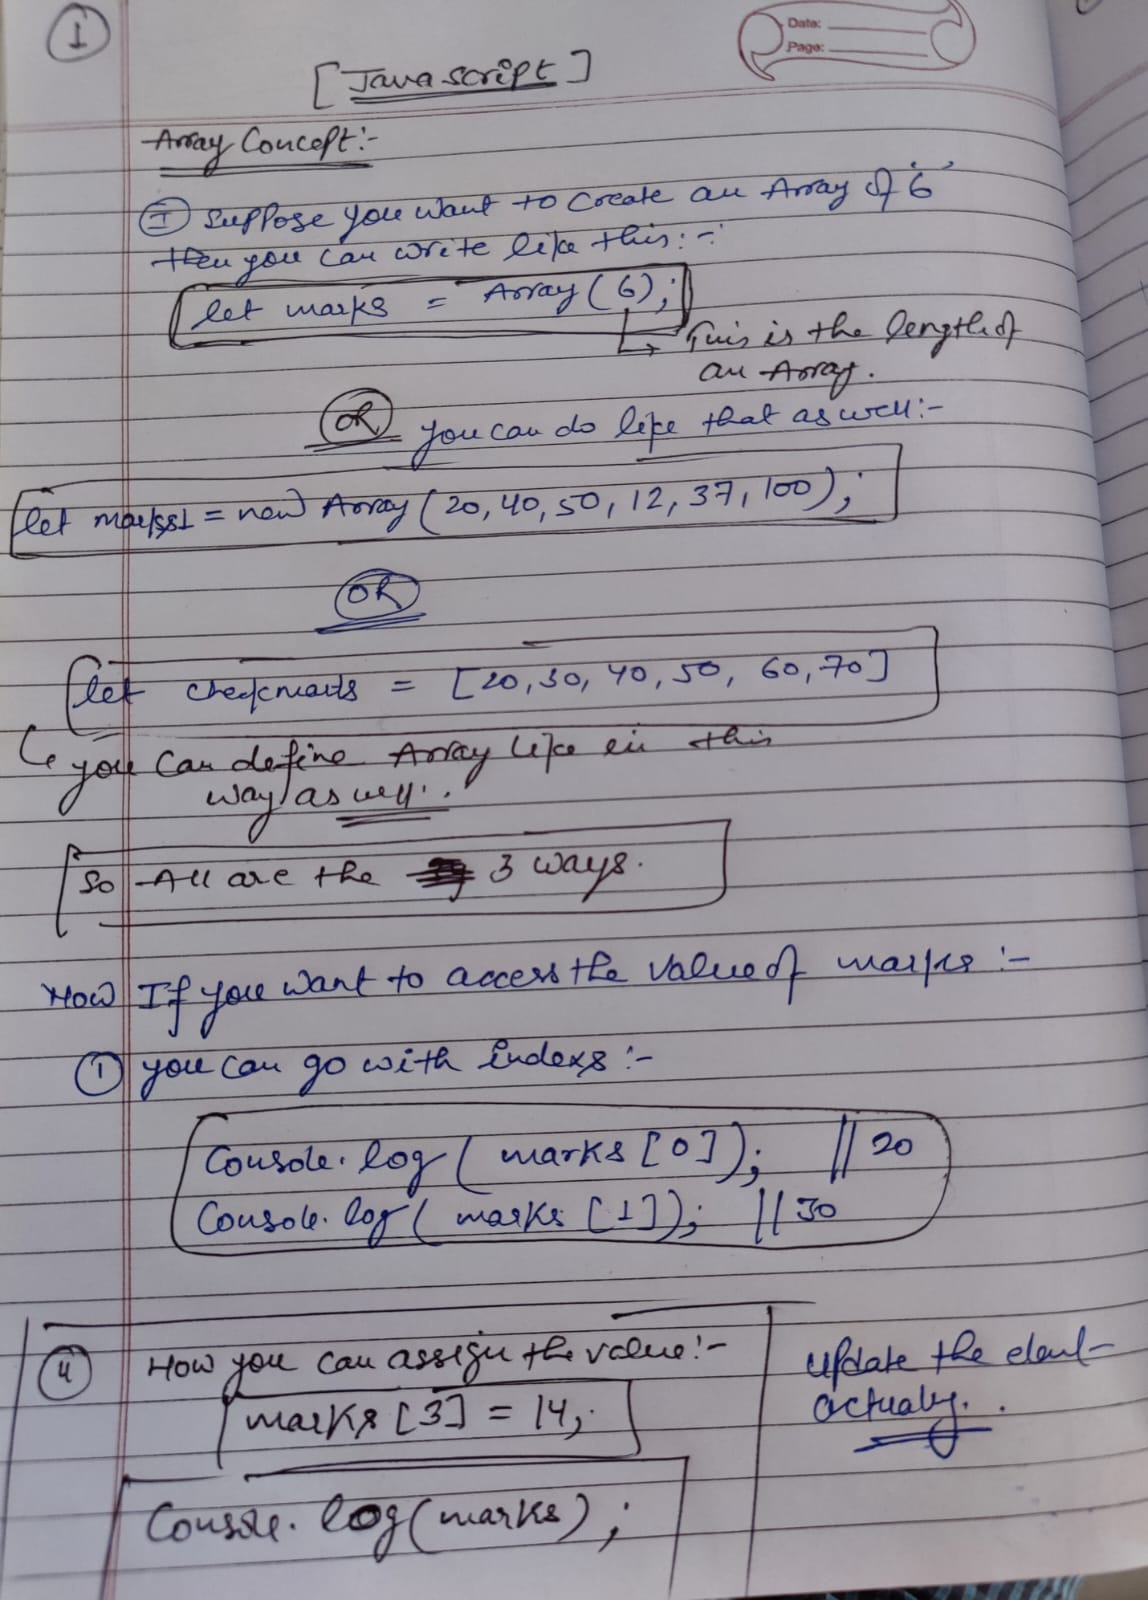 1
Date:
Page:
[Javascript]
Array Concept:-
I Suppose you want to create an Array of '6'
then you can write like this:-
let marks = Array(6);
↳ This is the length of
an Array.
OR you can do like that as well:-
let marks1 = new Array(20,40,50,12,37,100);
OR
let checkmarks = [20,30,40,50, 60,70]
↳ you can define Array like in this
way as well..
So All are the 3 ways.
Now If you want to access the value of marks :-
1 you can go with indexs :-
Console.log( marks[0]); // 20
Console.log( marks[1]); // 30
4 How you can assign the value:-
marks[3] = 14;
update the
actualy..
Console.log(marks);